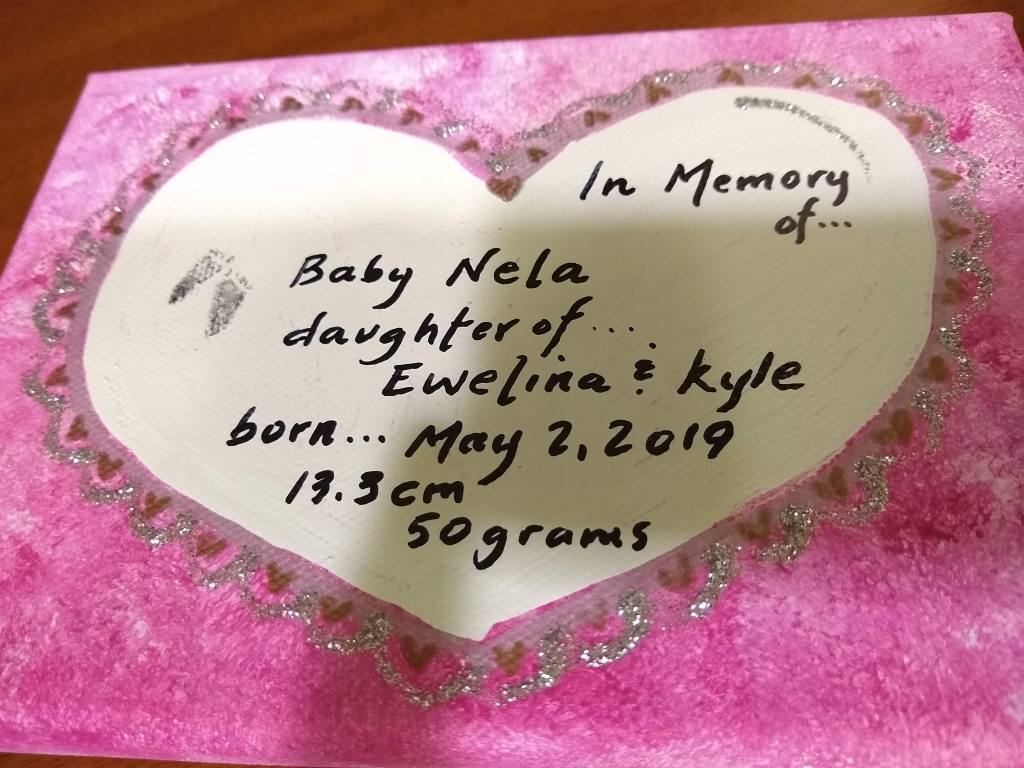 In Memory
of...
Baby Nela
daughter of...
Ewelina & Kyle
born... May 2, 2019
13.3 cm
50 grams